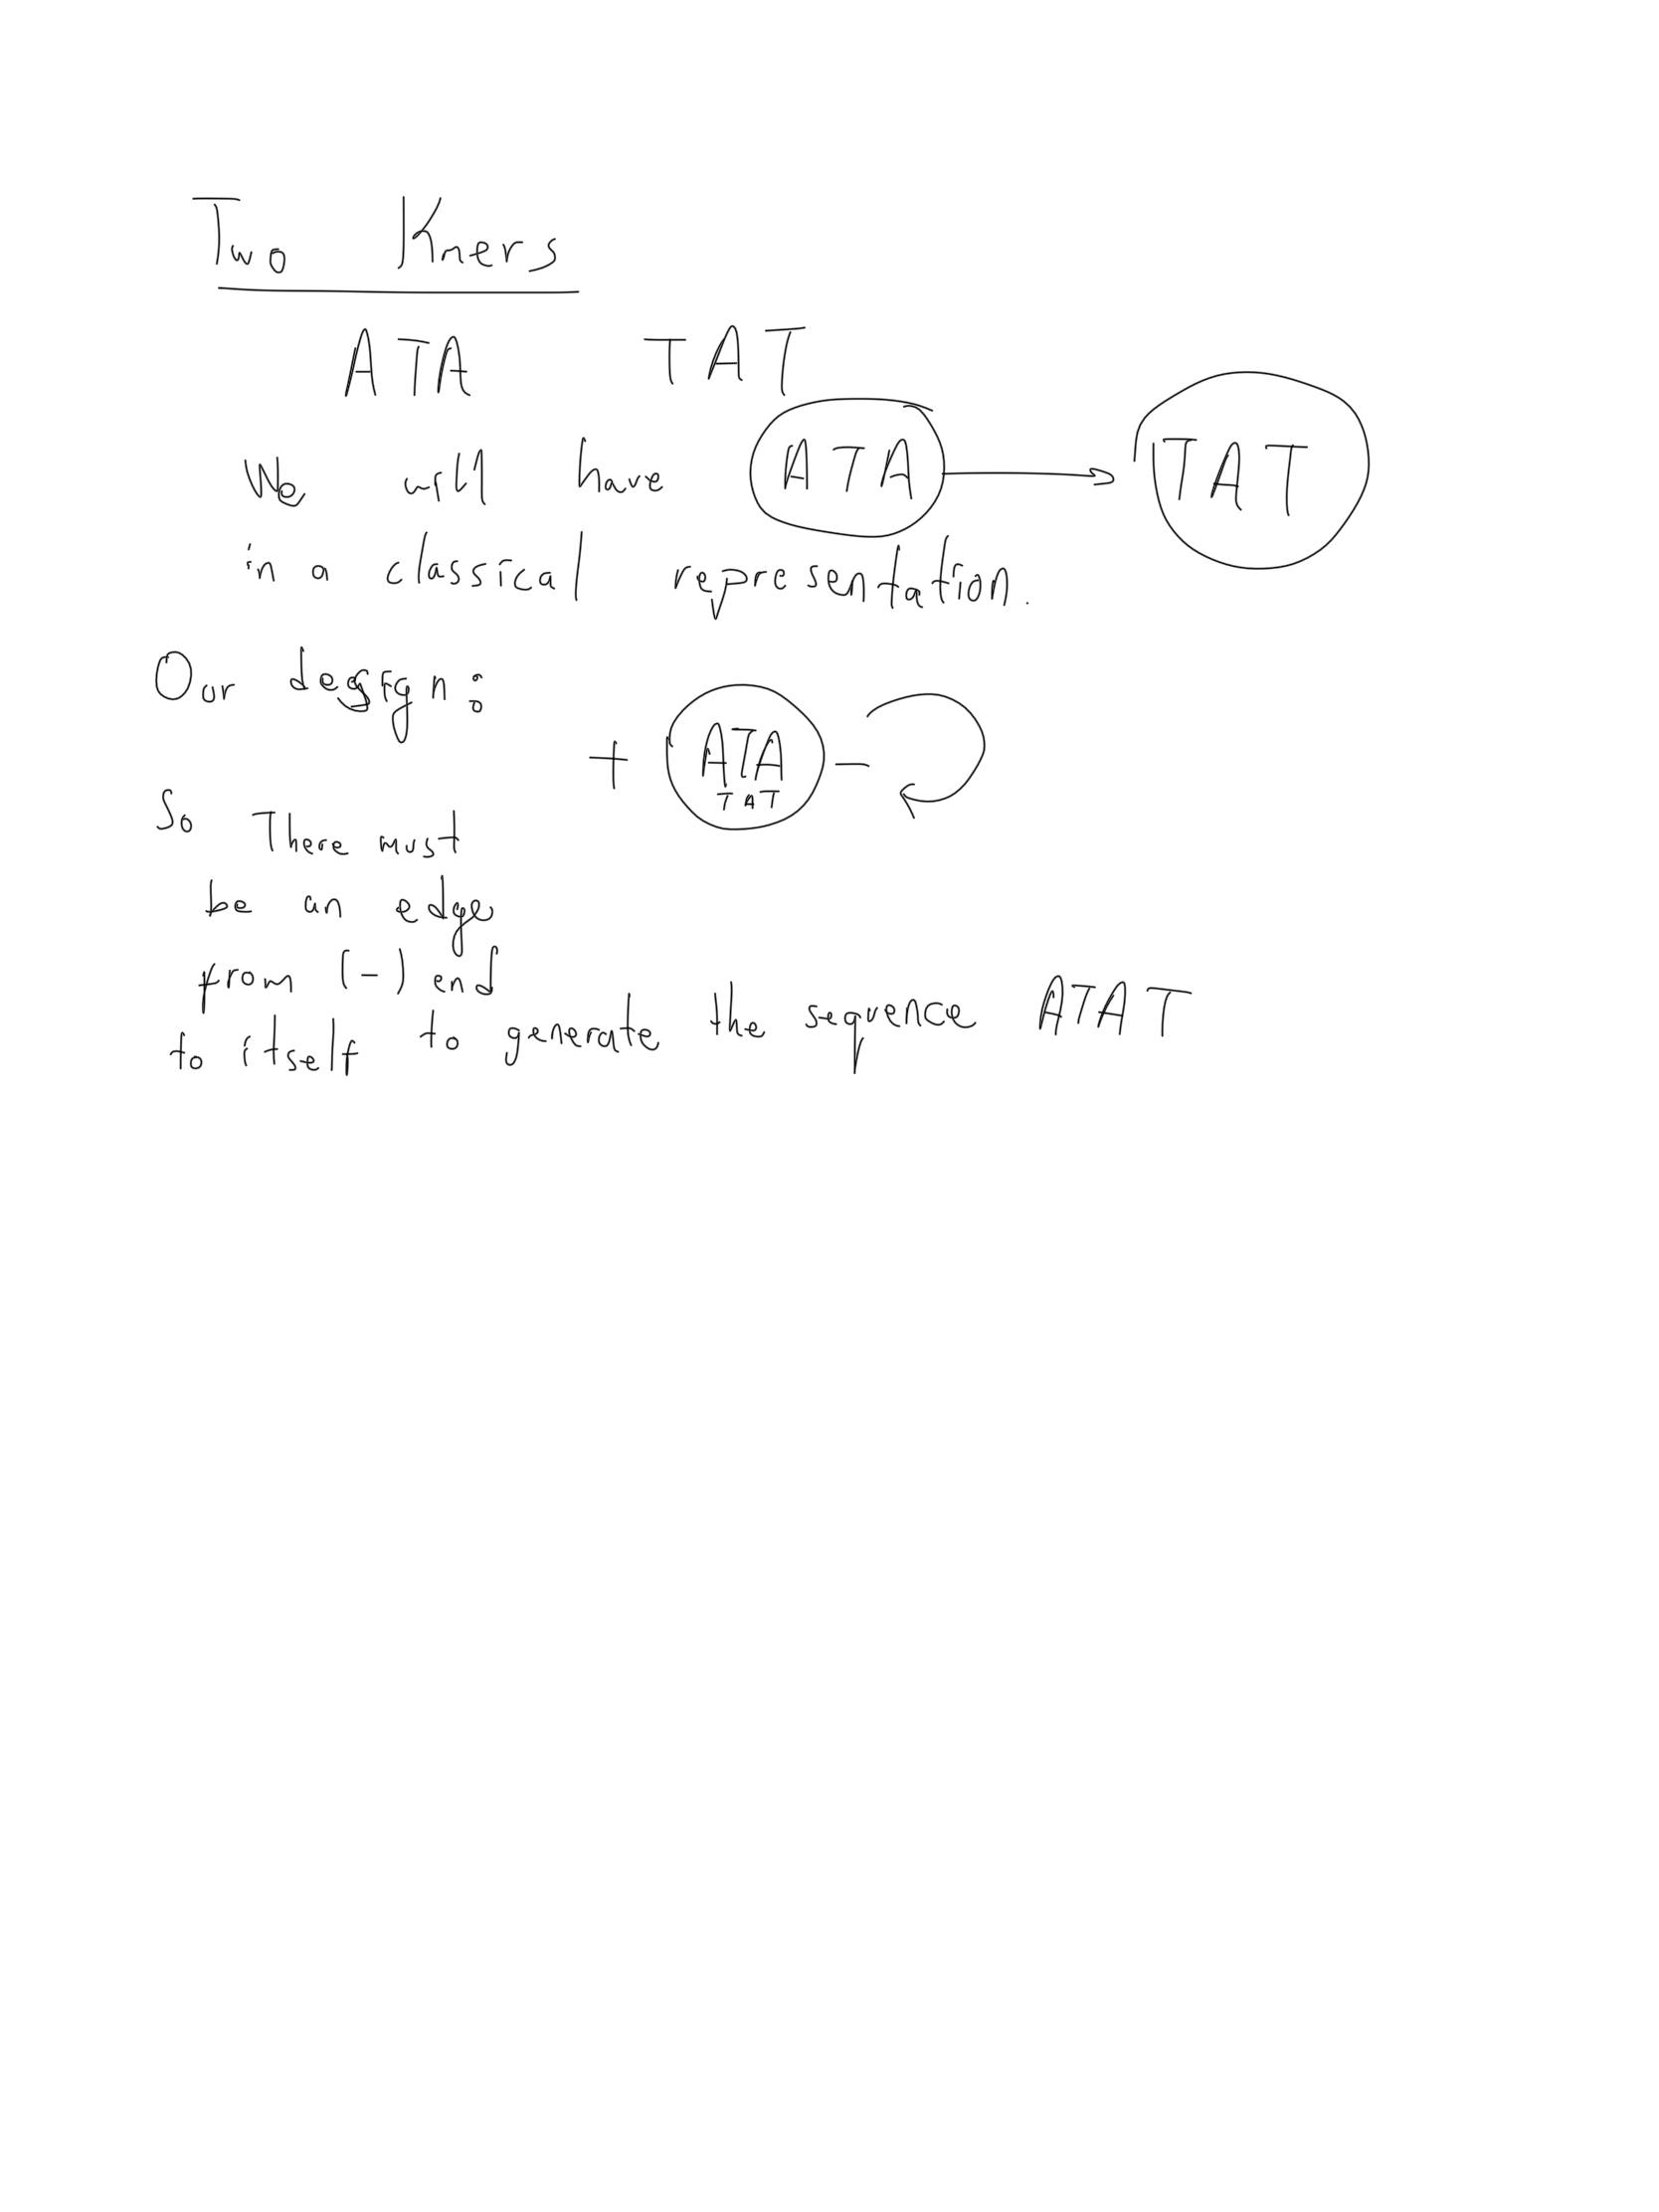 Two Kmers
ATA TAT
We will have ATA TAT
in a classical representation.
Our design:
+ ATA -
TAT
So There must
be an edge
from (-) end
to itself to generate the sequnce ATAT